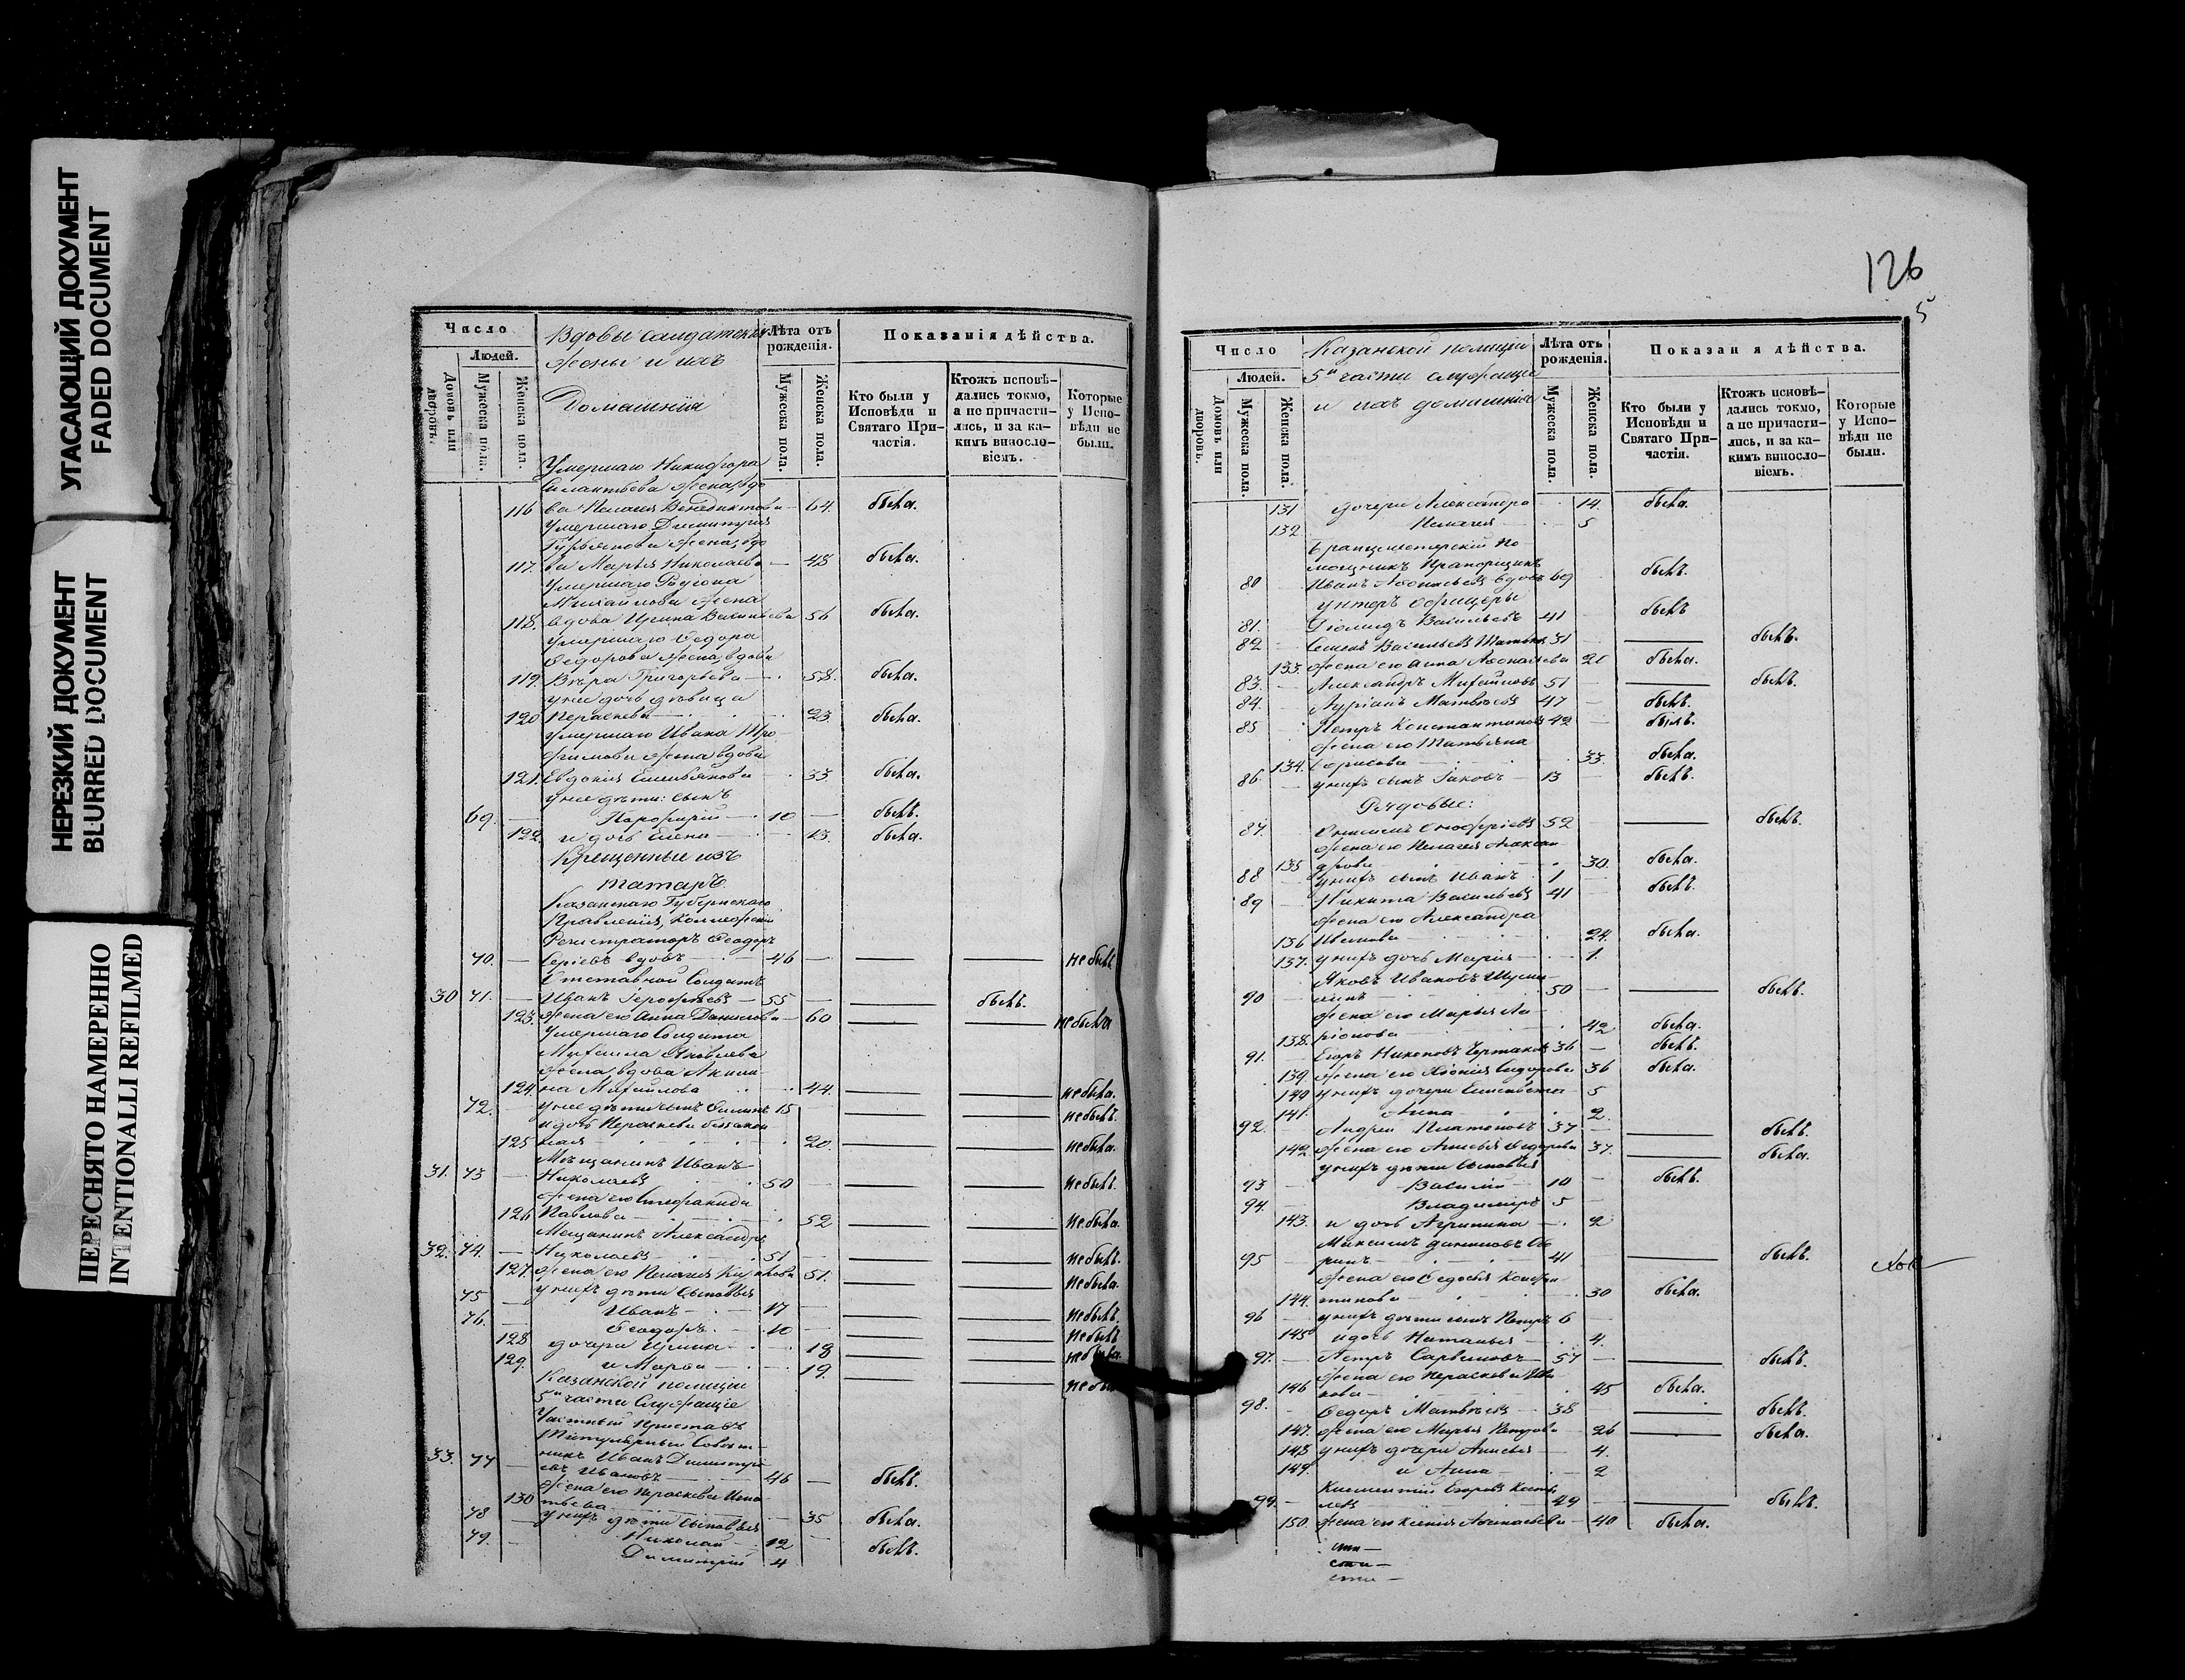 УГАСАЮЩИЙ ДОКУМЕНТ
FADED DOCUMENT
НЕРЕЗКИЙ ДОКУМЕНТ
BLURRED DOCUMENT
ПЕРЕСНЯТО НАМЕРЕННО
INTENTIONALLI REFILMED
Число
Людей.
Домовъ или дворовъ.
Мужеска пола.
Женска пола.
Вдовы солдатскія
жены и ихъ
Домашнія
Лѣта отъ рожденія.
Мужеска пола.
Женска пола.
Показанія дѣйства.
Кто были у Исповѣди и Святаго Причастія.
Ктожъ исповѣдались токмо, а не причастились, и за какимъ винословіемъ.
Которые у Исповѣди не были.
Умершаго Никифора
жена вдо
116 ва Пелагія Венедиктова 64. была.
Умершаго Димитрія
жена, вдо
117. ва Марья Николаева 48 была.
Умершаго Родіона
Михайлова жена
118. вдова Ирина Васильева 56 была.
Умершаго Федора
Федорова жена, вдова
119. Вѣра Григорьева 58. была.
у нее дочь дѣвица
120 Параскева 23. была.
Умершаго Ивана Тро
фимова жена вдова
121. Евдокія Емельянова 33 была.
у нее дѣти: сынъ
69. Порфирій 10 былъ.
122. и дочь Елена 13. была.
Крещенные изъ
татаръ
Казанскаго Губернскаго
Правленія, Коллежскій
Регистраторъ Феодоръ
70. Сергѣевъ вдовъ 46 не былъ
Отставной Солдатъ
30 71. Иванъ 55 былъ.
123. жена его Анна Данилова 60 не была
Умершаго Солдата
Михаила Яковлева
жена вдова Акили
124. на Михайлова 44. не была.
72. у нее дѣти: сынъ 15 не былъ.
и дочь Параскева
125 20. не была.
Мѣщанинъ Иванъ
31. 73 Николаевъ 50 не былъ.
жена его Стефанида
126 Павлова 52 не была.
Мещанинъ Александръ
32. 74. Николаевъ 51 не былъ.
127. жена его Пелагія 51. не была.
у нихъ дѣти сыновья
75 Иванъ 17 не былъ.
76. Феодоръ 10 не былъ
128 дочери Ирина 18 не была.
129. и Марья 19. не бы
Казанской полиціи
5й части Служащіе
Частный Приставъ
Титулярный Совѣт-
33. 77 никъ Иванъ Димитрі
евъ Ивановъ 46 былъ.
жена его Параскева Игна
130 тьева 35 была.
78 у нихъ дѣти сыновья
79. Николай 12 былъ.
Димитрій 4
126
5
Число
Людей.
Домовъ или дворовъ.
Мужеска пола.
Женска пола.
Казанской полиціи
5й части служащіе
и ихъ домашніе
Лѣта отъ рожденія.
Мужеска пола.
Женска пола.
Показан я дѣйства.
Кто были у Исповѣди и Святаго Причастія.
Ктожъ исповѣдались токмо, а не причастились, и за какимъ винословіемъ.
Которые у Исповѣди не были.
131 дочери Александра 14. была.
132 Пелагія 5
Брантмейстерскій По-
мощникъ Прапорщикъ
80 Иванъ Афанасьевъ вдовъ 69 былъ.
Унтеръ Офицеры
81. Діомидъ Васильевъ 41 былъ
82 Семенъ Васильевъ 31 былъ.
133. жена его Анна Афонасьева была.
83. Александръ Михайловъ 51 былъ.
84. Матвѣевъ 47 былъ.
85 Петръ Константиновъ 42 былъ.
жена его Татьяна
134. Борисова 33. была.
86. у нихъ сынъ Іаковъ 13 былъ.
Рядовые:
87. Онисимъ Онофріевъ 52 былъ.
жена его Пелагія Алексан
135 дрова 30. была.
88 у нихъ сынъ Иванъ 1
89 Никита Васильевъ 41 былъ.
жена его Александра
136 Иванова 24. была.
137. у нихъ дочь Марія 1.
Яковъ Ивановъ
90 50 былъ.
жена его Марья Ла-
138. ріонова 42 была.
91. Егоръ Никоновъ 36 былъ.
139. жена его Сидорова 36 была.
140 у нихъ дочери Елисавета 5
141. Анна 2.
92. Андрей Платоновъ 37 былъ.
142 жена его Федорова 37. была.
у нихъ дѣти сыновья
93 Василій 10 былъ.
94. Владиміръ 5
143. и дочь Агрипина 2
Максимъ
95 41 былъ.
жена его Федосья Констан
144. тинова 30 была.
96 у нихъ дѣти сынъ Петръ 6
145 и дочь Наталья 4.
97. Петръ 57 былъ.
жена его Параскева
146 нова 45 была.
98. Федоръ Матвѣевъ 38 былъ.
147. жена его Марья Петрова 26 была.
148 у нихъ дочери Анисья 4.
149. и Анна 2
Климентій Егоровъ
99. 49 былъ.
150. жена его Ксенія Афанасьева 40 была.